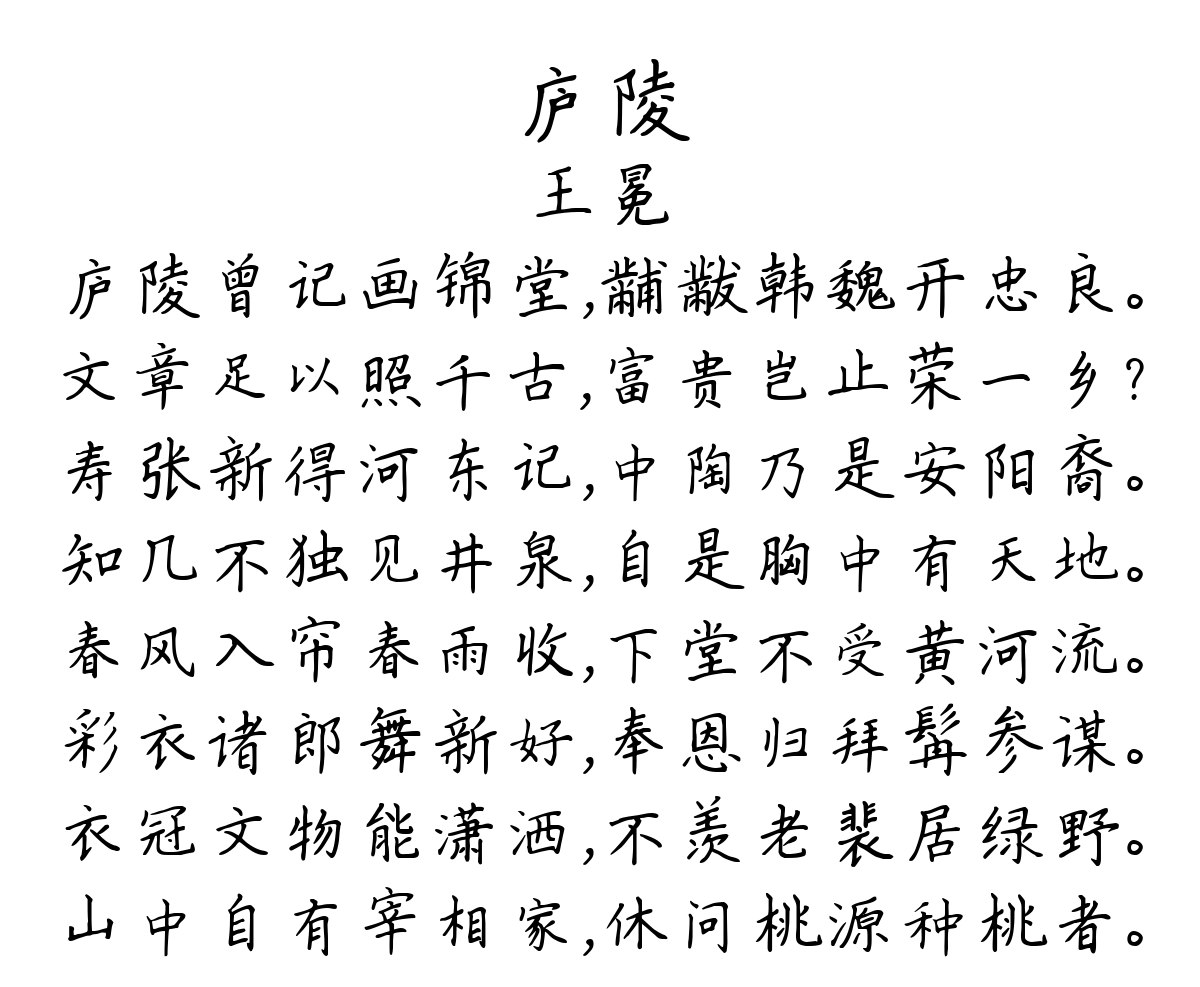 庐陵
王冕
庐陵曾记画锦堂,黼黻韩魏开忠良。
文章足以照千古,富贵岂止荣一乡?
寿张新得河东记,中陶乃是安阳裔。
知几不独见井泉,自是胸中有天地。
春风入帘春雨收,下堂不受黄河流。
彩衣诸郎舞新好,奉恩归拜髯参谋。
衣冠文物能潇洒,不羡老裴居绿野。
山中自有宰相家,休问桃源种桃者。